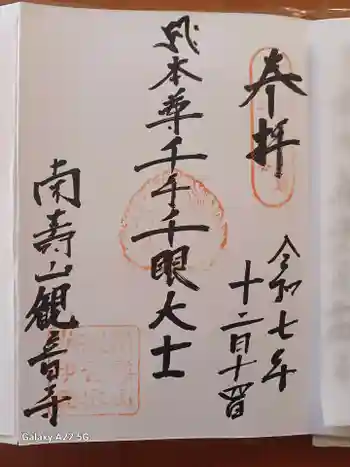 奉拝
令和七年
十二月十四日
本尊千手千眼大士
南寿山観音寺
Galaxy A22 5G